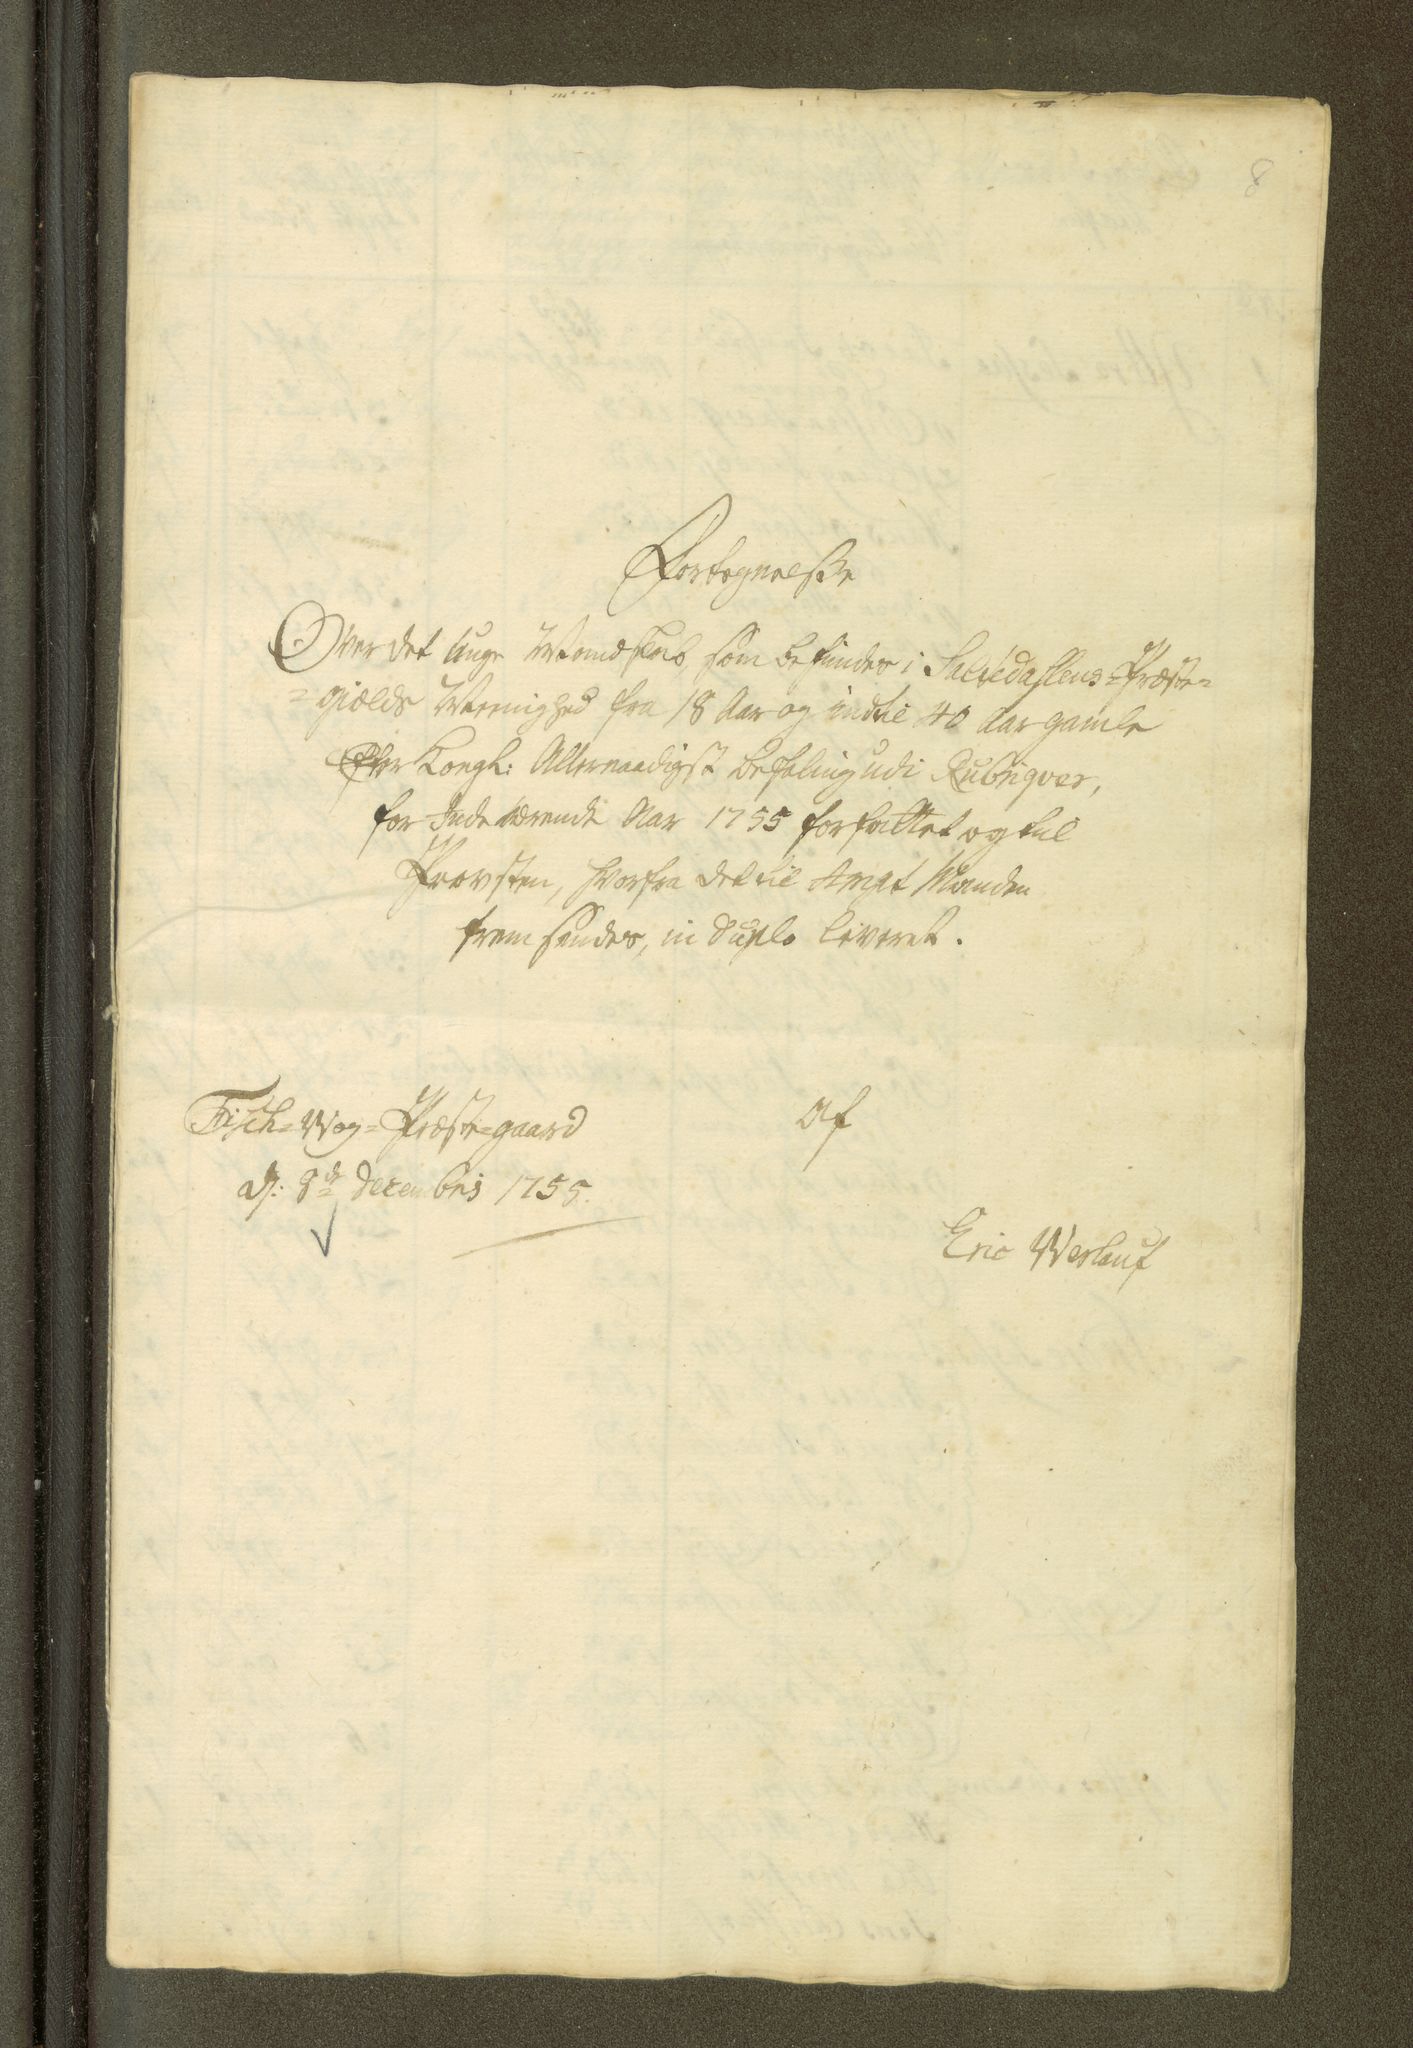 8
Fortegnelse
Over det unge Mandskab, som befindes i Saltedahlens=Præste=
=gields Menighed fra 18 Aar og indtil 40 Aar gamle
Efter Kongl: Allernaadigst befaling udi Rubriqver,
for Indeværende Aar 1755 forfattet og til
Provsten, hvorfra det til Ampt Manden
frem sendes, in duplo leveret.
Fisch=Wog=Præste=gaard
d: 8de Decembris 1755.
af
Eric Werlauf